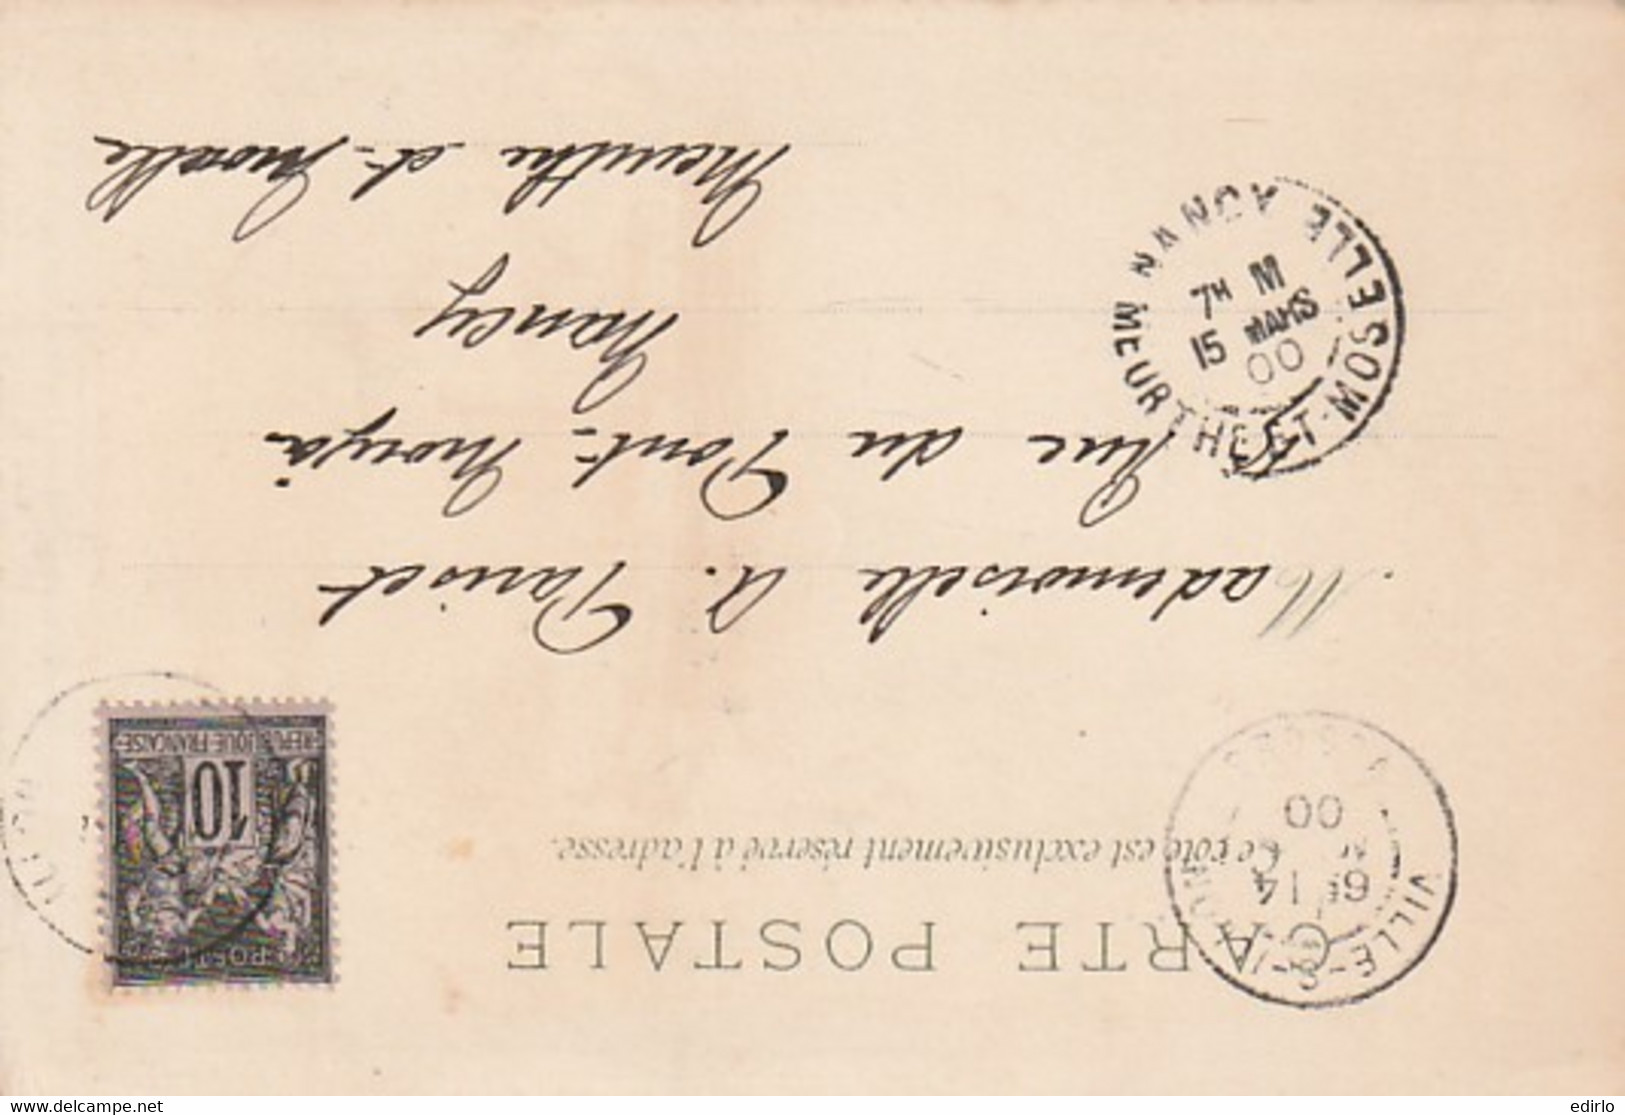 CARTE POSTALE
Ce côté est exclusivement réservé à l'adresse.
Mademoiselle A. Pariset
Rue du Pont-Mouja
Nancy
Meurthe et Moselle
POSTES
10
REPUBLIQUE FRANÇAISE
VILLE-S
6E 14
00
NANCY
MEURTHE-ET-MOSELLE
7H M
15 MARS
00
delcampe.net
edirlo